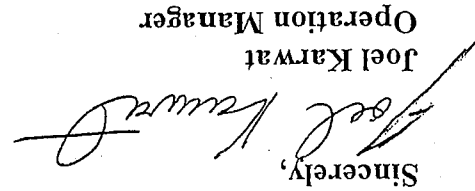 Sincerely,
Joel Karwat
Joel Karwat
Operation Manager